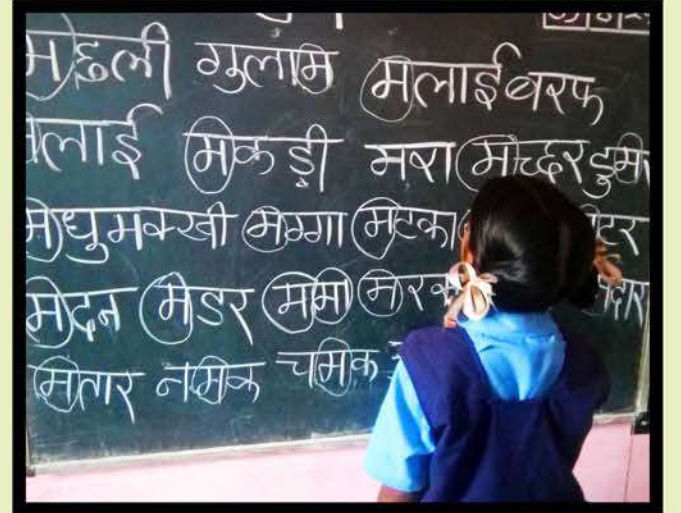 मछली गुलाम मलाईबरफ
लाई मकड़ी मच्छर
मधुमक्खी मग्गा मटका टर
मदन मडर ममा मरक दार
मतार नमक चमक